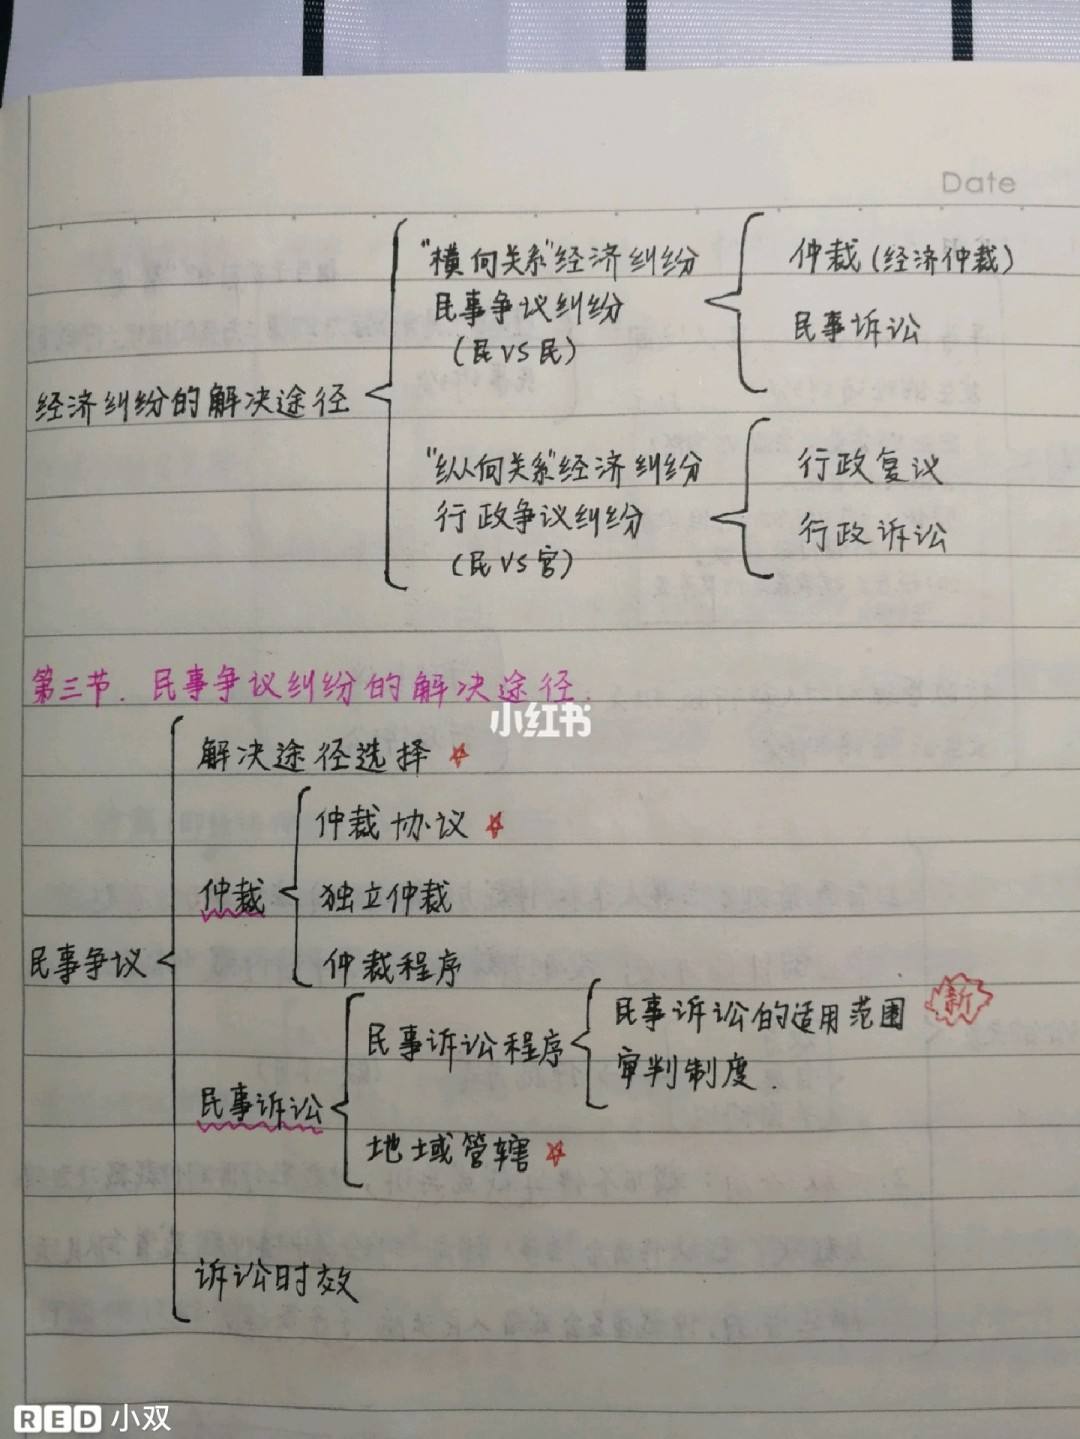 Date
"横向关系"经济纠纷
民事争议纠纷
(民VS民)
仲裁(经济仲裁)
民事诉讼
经济纠纷的解决途径
"纵向关系"经济纠纷
行政争议纠纷
(民VS官)
行政复议
行政诉讼
第三节. 民事争议纠纷的解决途径.
小红书
解决途径选择
仲裁协议
仲裁
独立仲裁
仲裁程序
民事争议
民事诉讼的适用范围
新
民事诉讼程序
审判制度.
民事诉讼
地域管辖
诉讼时效
RED 小双